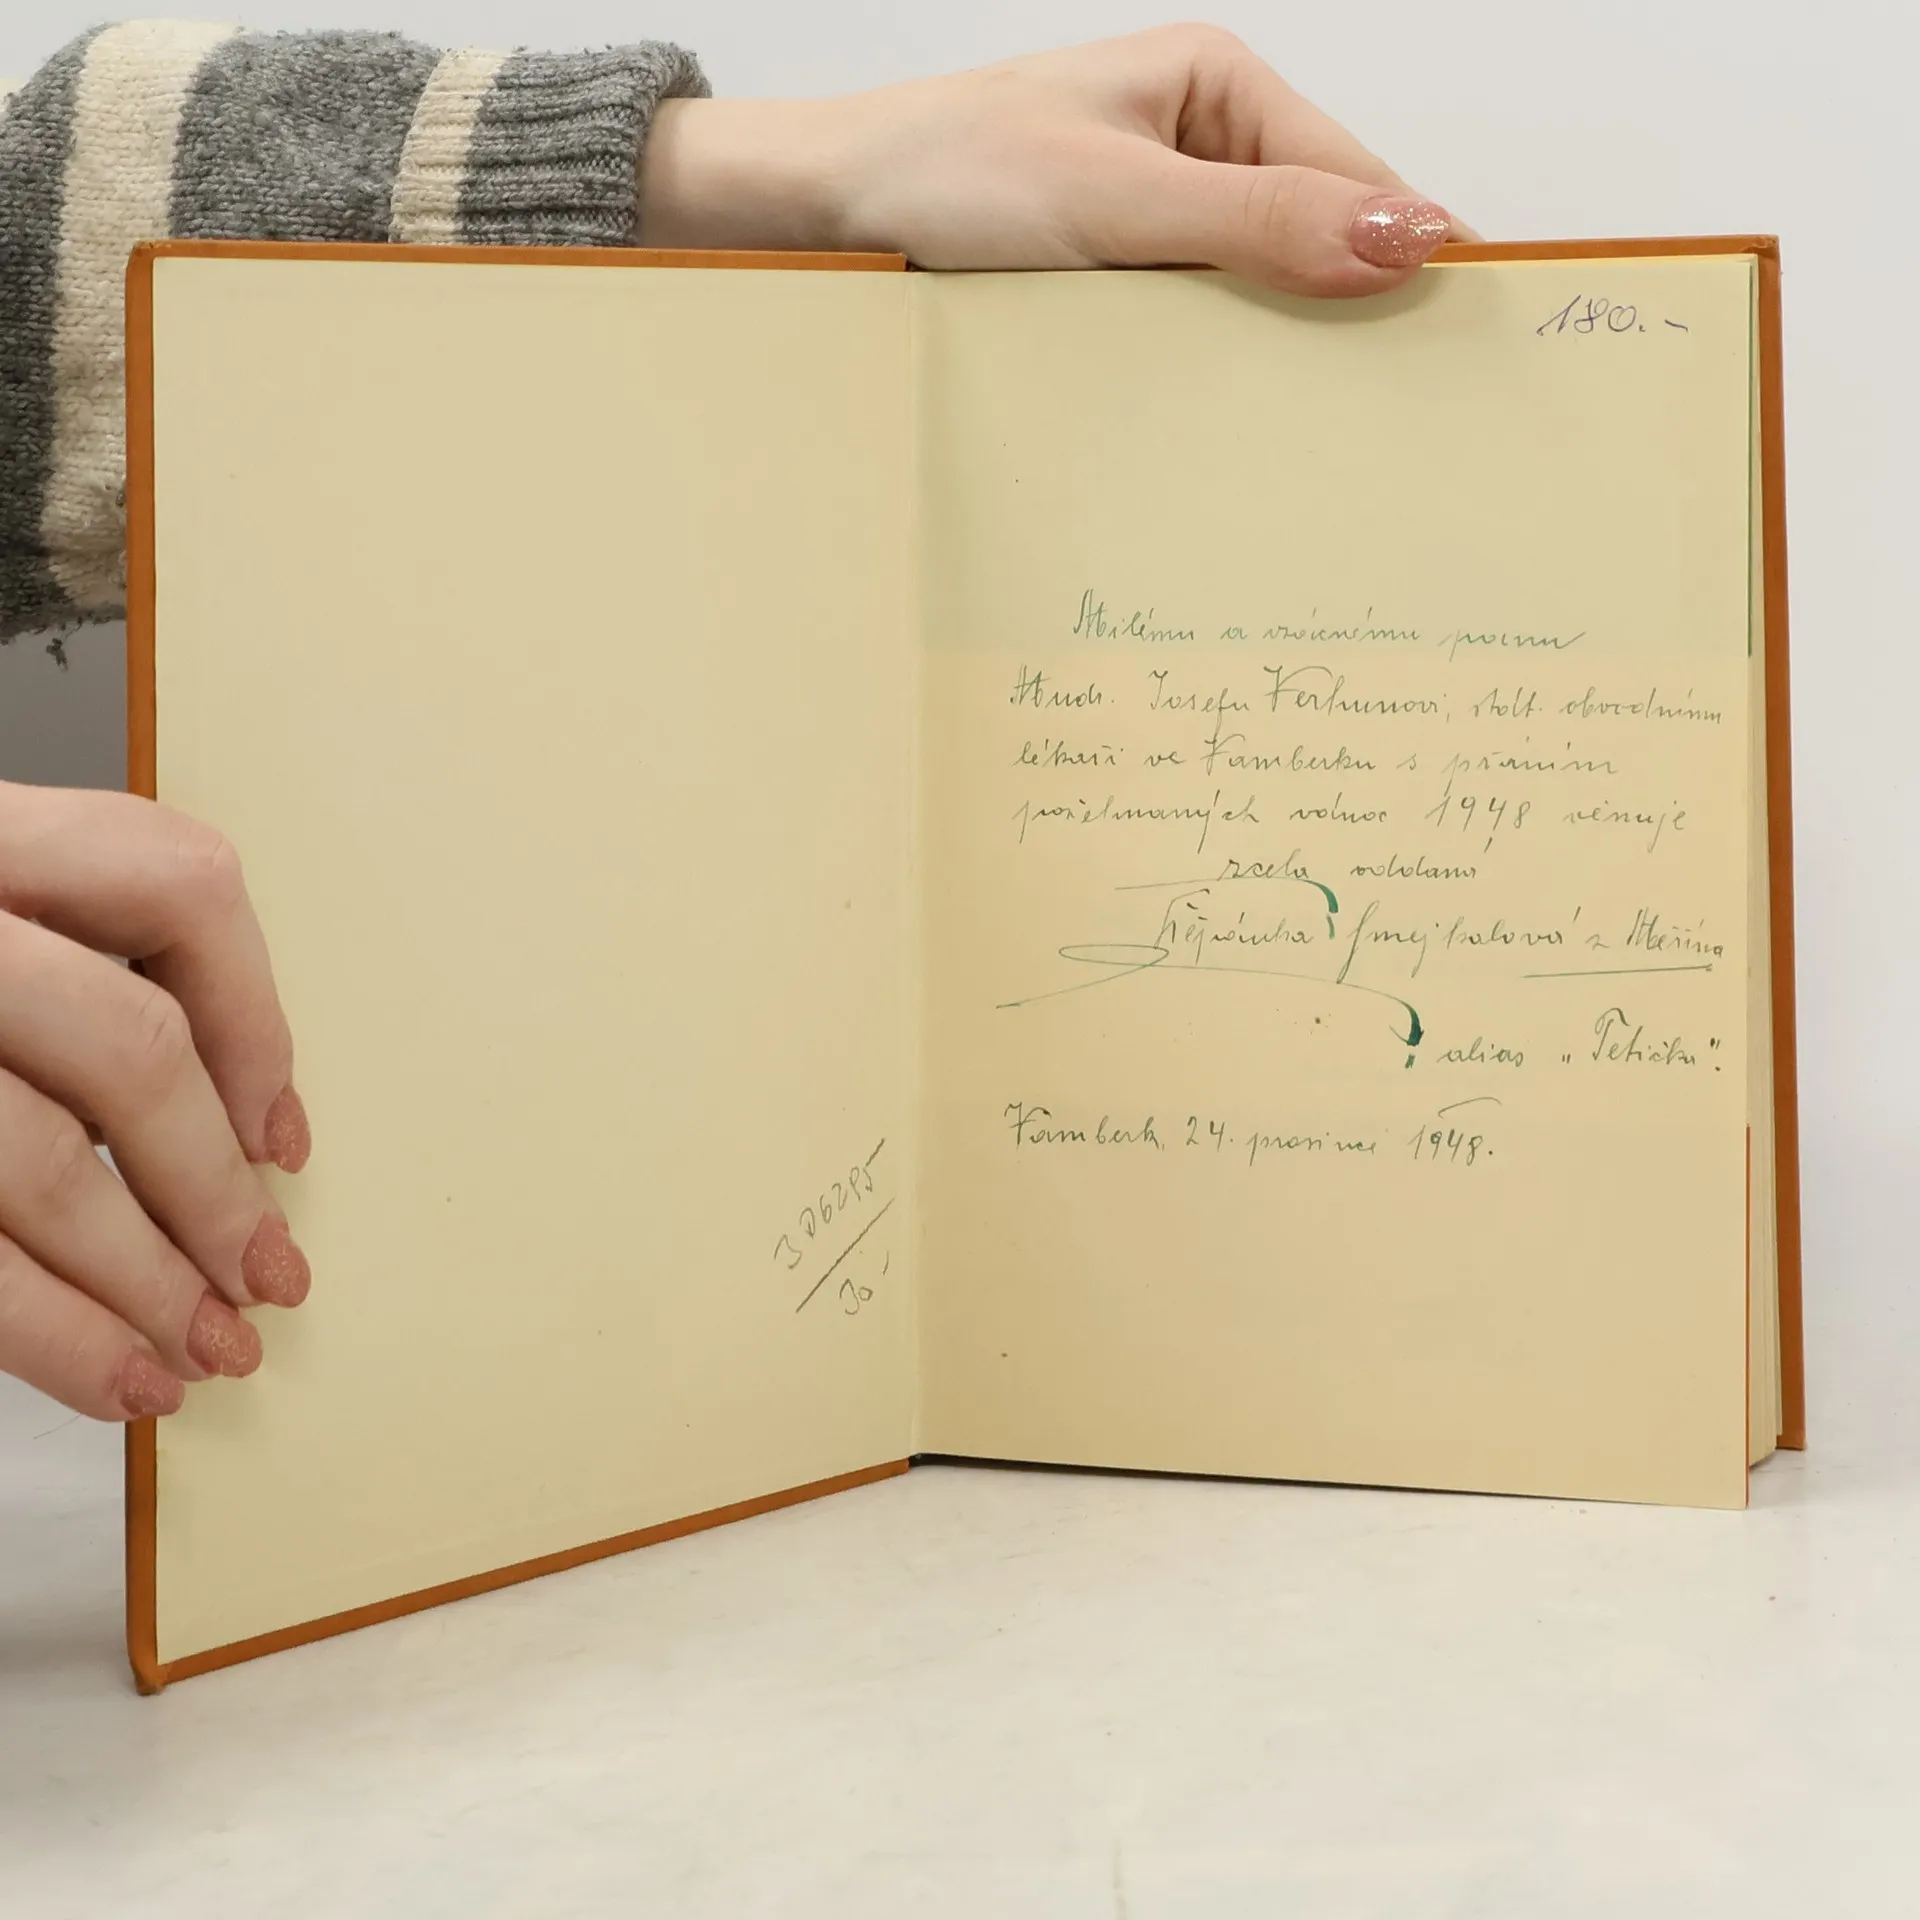 3 D6295
30,-
180.-
Milému a vzácnému panu
Mudr. Josefu Verhunovi, stát. obvodnímu
lékaři ve Vamberku s přáním
požehnaných vánoc 1948 věnuje
zcela oddaná
Štěpánka Smejkalová z Meziříčí
alias „Tetička".
Vamberk, 24. prosince 1948.